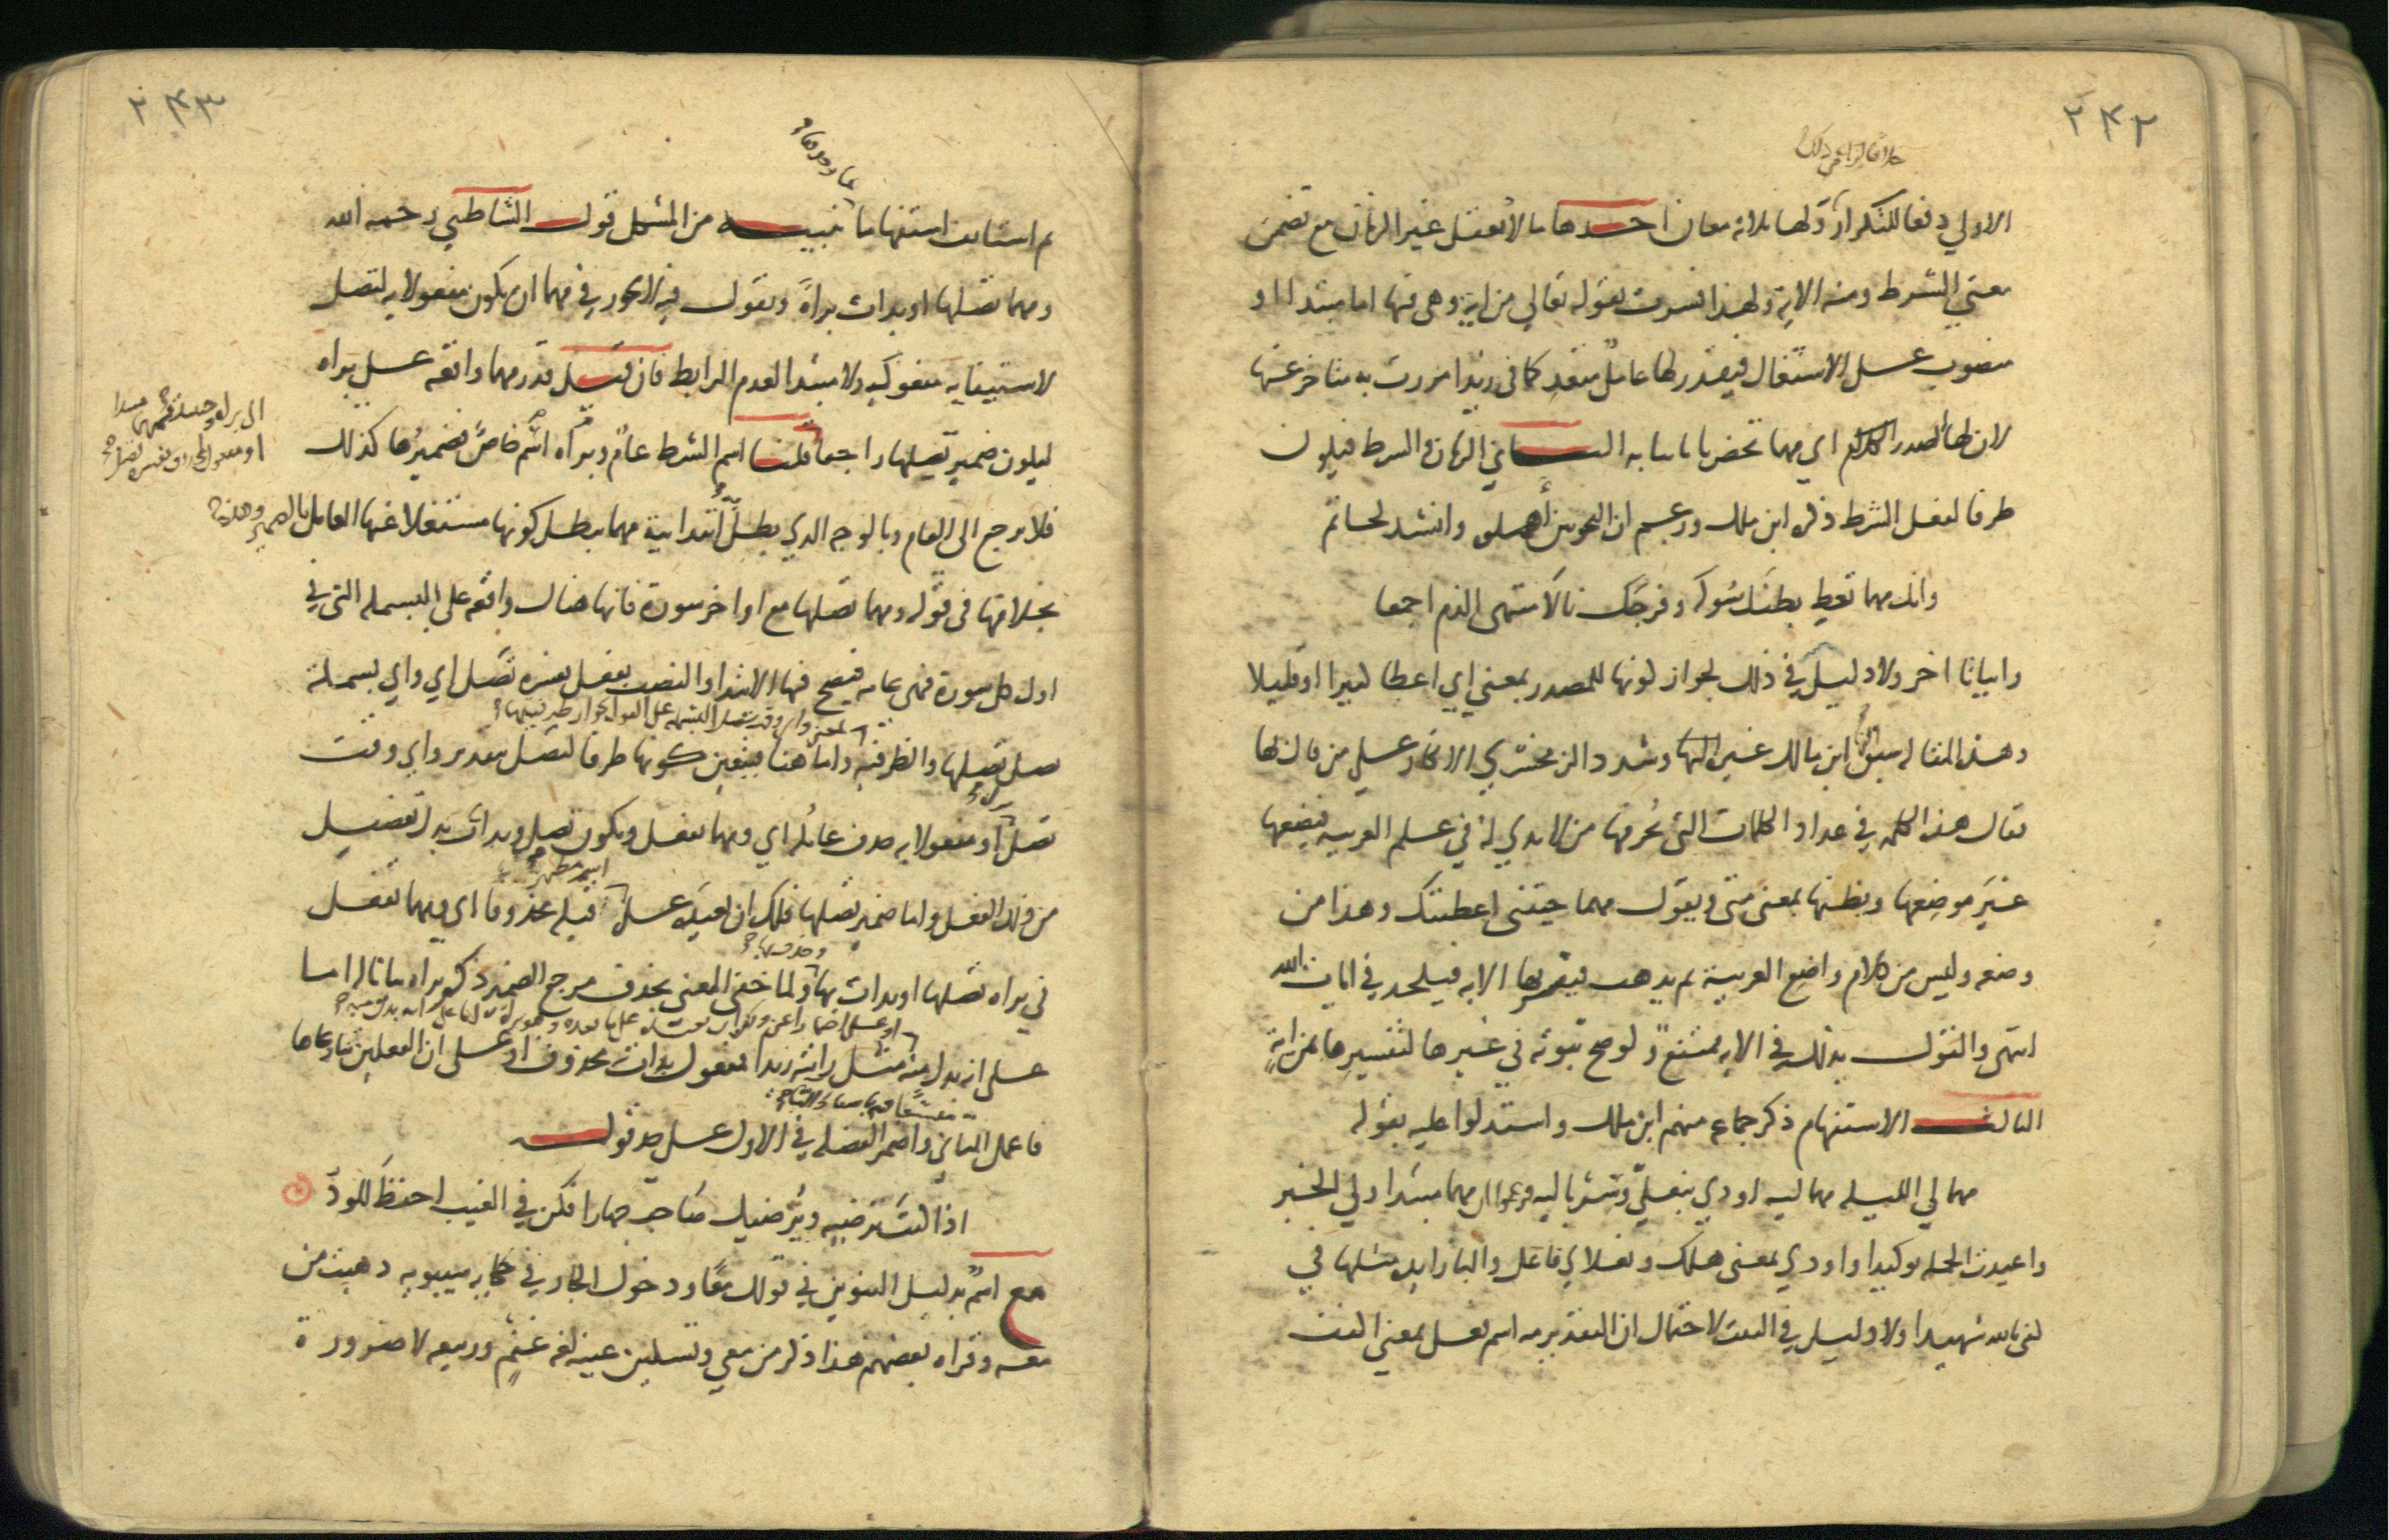 ٢٤٢
خلافا لزاعمي ذلك
الاولي دفعا للتكرار ولها ثلاثة معان احدها ما لا يعقل غير الزمان مع تضمن
معني الشرط ومنه الاية ولهذا فسرت بقوله تعالي من اية وهي فيها اما مبتدا او
منصوب علي الاشتغال فيقدر لها عامل متعد كما في زيدا مررت به متاخر عنها
لان لها الصدر الكلام اي مهما تحضرنا تاتنا به الثاني الزمان والشرط فيكون
ظرفا لفعل الشرط ذكره ابن ملك وزعم ان النحويين أهملوه وانشد لحاتم
وانك مهما تعط بطنك سوله وفرجك نالا منتهى الذم اجمعا
وابياتا اخر ولا دليل في ذلك لجواز كونها للمصدر بمعني اي اعطا كثيرا او قليلا
وهذه المقالة سبق اليها ابن مالك غيره وشدد الزمخشري الانكار علي من قال بها
فقال هذه الكلمة في عداد الكلمات التي يحرفها من لا يدي له في علم العربية فيضعها
غير موضعها ويظنها بمعنى متى ويقول مهما جيتني اعطيتك وهذا من
وضعه وليس من كلام واضع العربية ثم يذهب فيفسر بها الاية فيلحد في ايات الله
انتهى والقول بذلك في الاية ممتنع ولو صح ثبوته في غيرها لتفسيرها بمن اية
الثالث الاستفهام ذكره جماعة منهم ابن ملك واستدلوا عليه بقوله
مهما لي الليلة مهما ليه اودي بنعليّ وسرباليه فزعموا ان مهما مبتدا ولي الخبر
واعيدت الجملة توكيدا واودي بمعنى هلك ونعلاي فاعل والبا زايدة مثلها في
كفى بالله شهيدا ولا دليل في البيت لاحتمال ان التقدير مه اسم فعل بمعني اكفف
٢٤٣
ثم استانف استفهاما بما وحدها تنبيه من المشكل قول الشاطبي رحمه الله
ومهما تصلها او بدات براة ونقول فيه لا يجوز في مهما ان يكون مفعولا به لتصل
لاستيفايه مفعوليه ولا مبتدا لعدم الرابط فان قيل قدر مهما واقعة علي براه
ليكون ضمير تصلها راجعا قلنا اسم الشرط عام وبراه اسم خاص فضميرها كذلك
الى براه وحينئذ فمهما مبتدا
او مفعول لمحذوف يفسره تصلها
فلا يرجع الى العام وبالوجه الذي بطل ابتدائية مهما يبطل كونها مشتغلا عنها العامل بالضمير وهذه
بخلافها في قوله ومهما تصلها مع اواخر سورة فانها هناك واقعة على البسملة التي في
اول كل سورة فهي عامة فيصح فيها الابتدا والنصب بفعل يفسره تصل اي واي بسملة
تصل تصلها والظرفية واما هنا فيتعين كونها ظرفا لتصل بتقدير واي وقت
تصل براة او مفعولا به حذف عامله اي ومهما تفعل ويكون تصل وبدات بدل تفصيل
من ذلك الفعل واما ضمير تصلها فلك ان تعيده علي اسم مظهر قبله محذوفا اي ومهما تفعل
في براه تصلها او بدات بها وحذف بها ولما خفى المعني بحذف مرجع الضمير ذكر براه بيانا له اما
على انه بدل منه مثل رايته زيدا مفعول بدات محذوف او علي ان الفعلين تنازعاها
فاعمل الثاني واضمر الفضلة في الاول علي حد قوله
اذا كنت ترضيه ويرضيك صاحب جهارا فكن في الغيب احفظ للودّ
مع اسم بدليل التنوين في قولك معا ودخول الجار في حكاية سيبويه ذهبت من
معه وقراة بعضهم هذا ذكر من معي وتسكين عينه لغة غنم وربيعة لا ضرورة